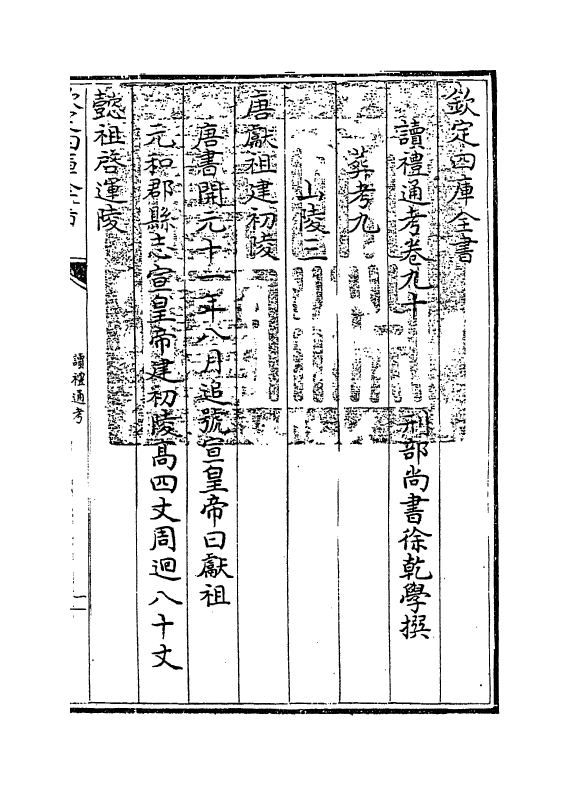 欽定四庫全書
讀禮通考卷九十
刑部尚書徐乾學撰
葬考九
山陵三
唐獻祖建初陵
唐書開元十一年八月追號宣皇帝曰獻祖
元和郡縣志宣皇帝建初陵高四丈周迴八十丈
懿祖啓運陵
讀禮通考
一